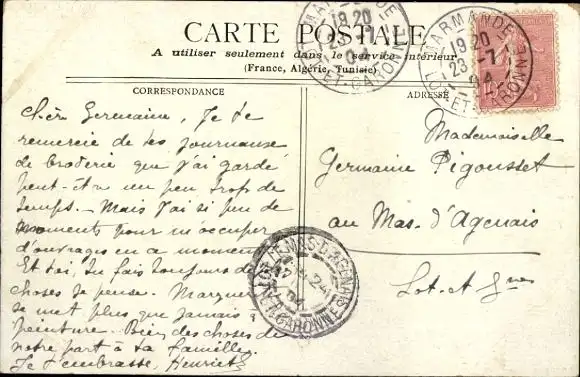 CARTE POSTALE
A utiliser seulement dans le service intérieur
(France, Algérie, Tunisie)
CORRESPONDANCE
ADRESSE
MARMANDE
19 20
23 -1
04
LOT-ET-GARONNE
MARMANDE
19 20
23 -1
04
LOT-ET-GARONNE
Chère Germaine, Je te
remercie de tes journaux
de broderie que j'ai gardé
peut-être un peu trop de
temps. Mais j'ai si peu de
moments pour m'occuper
d'ouvrages en ce moment
Et toi, tu fais toujours de
choses je pense.
se met plus que jamais à
peinture. Bien des choses de
notre part à ta famille.
Je t'embrasse, Henriette
Mademoiselle
Germaine Pigousset
au Mas-d'Agenais
Lot-et-Gne
LE MAS-D'AGENAIS
24
04
LOT-ET-GARONNE